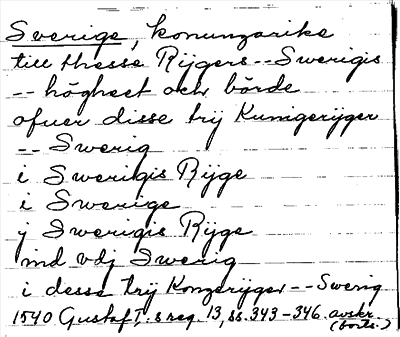 Sverige, konungarike
till thesse Rijgers -- Swerigis
-- högheet och börde
ofuer disse trij Kunigerijger
-- Swerig
i Swerigis Rijge
i Swerige
j Swerigis Rijge
ind vdj Swerig
i desse trij Kongerijger -- Swerig
1540 Gustaf I:s reg. 13, ss. 343-346. avskr.
(forts.)